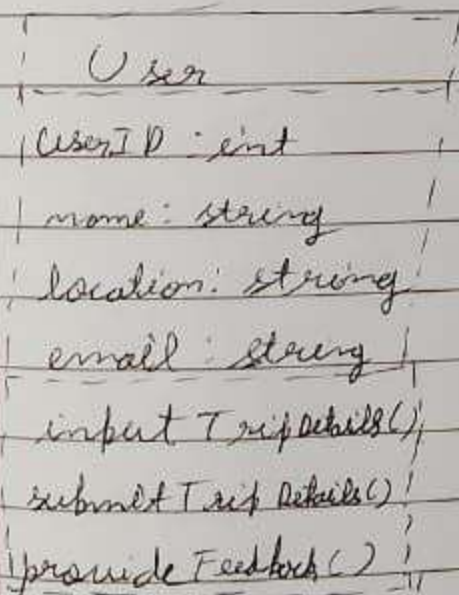 User
UserID : int
name : string
location : string
email : string
input TripDetails()
submit Trip Details()
provide Feedback()